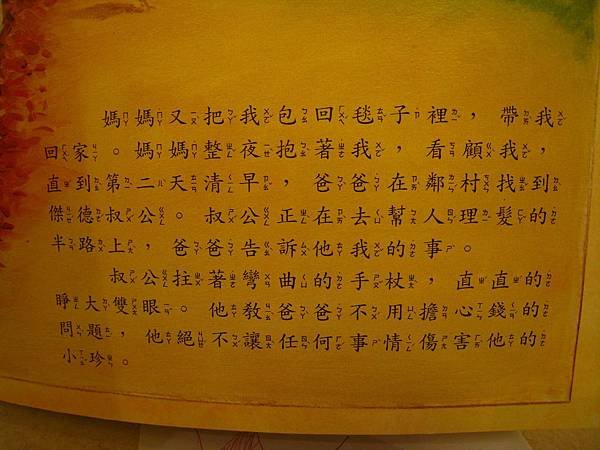 媽媽又把我包回毯子裡，帶我
回家。媽媽整夜抱著我，看顧我，
直到第二天清早，爸爸在鄰村找到
傑德叔公。叔公正在去幫人理髮的
半路上，爸爸告訴他我的事。
叔公拄著彎曲的手杖，直直的
睜大雙眼。他教爸爸不用擔心錢的
問題，他絕不讓任何事情傷害他的
小珍。